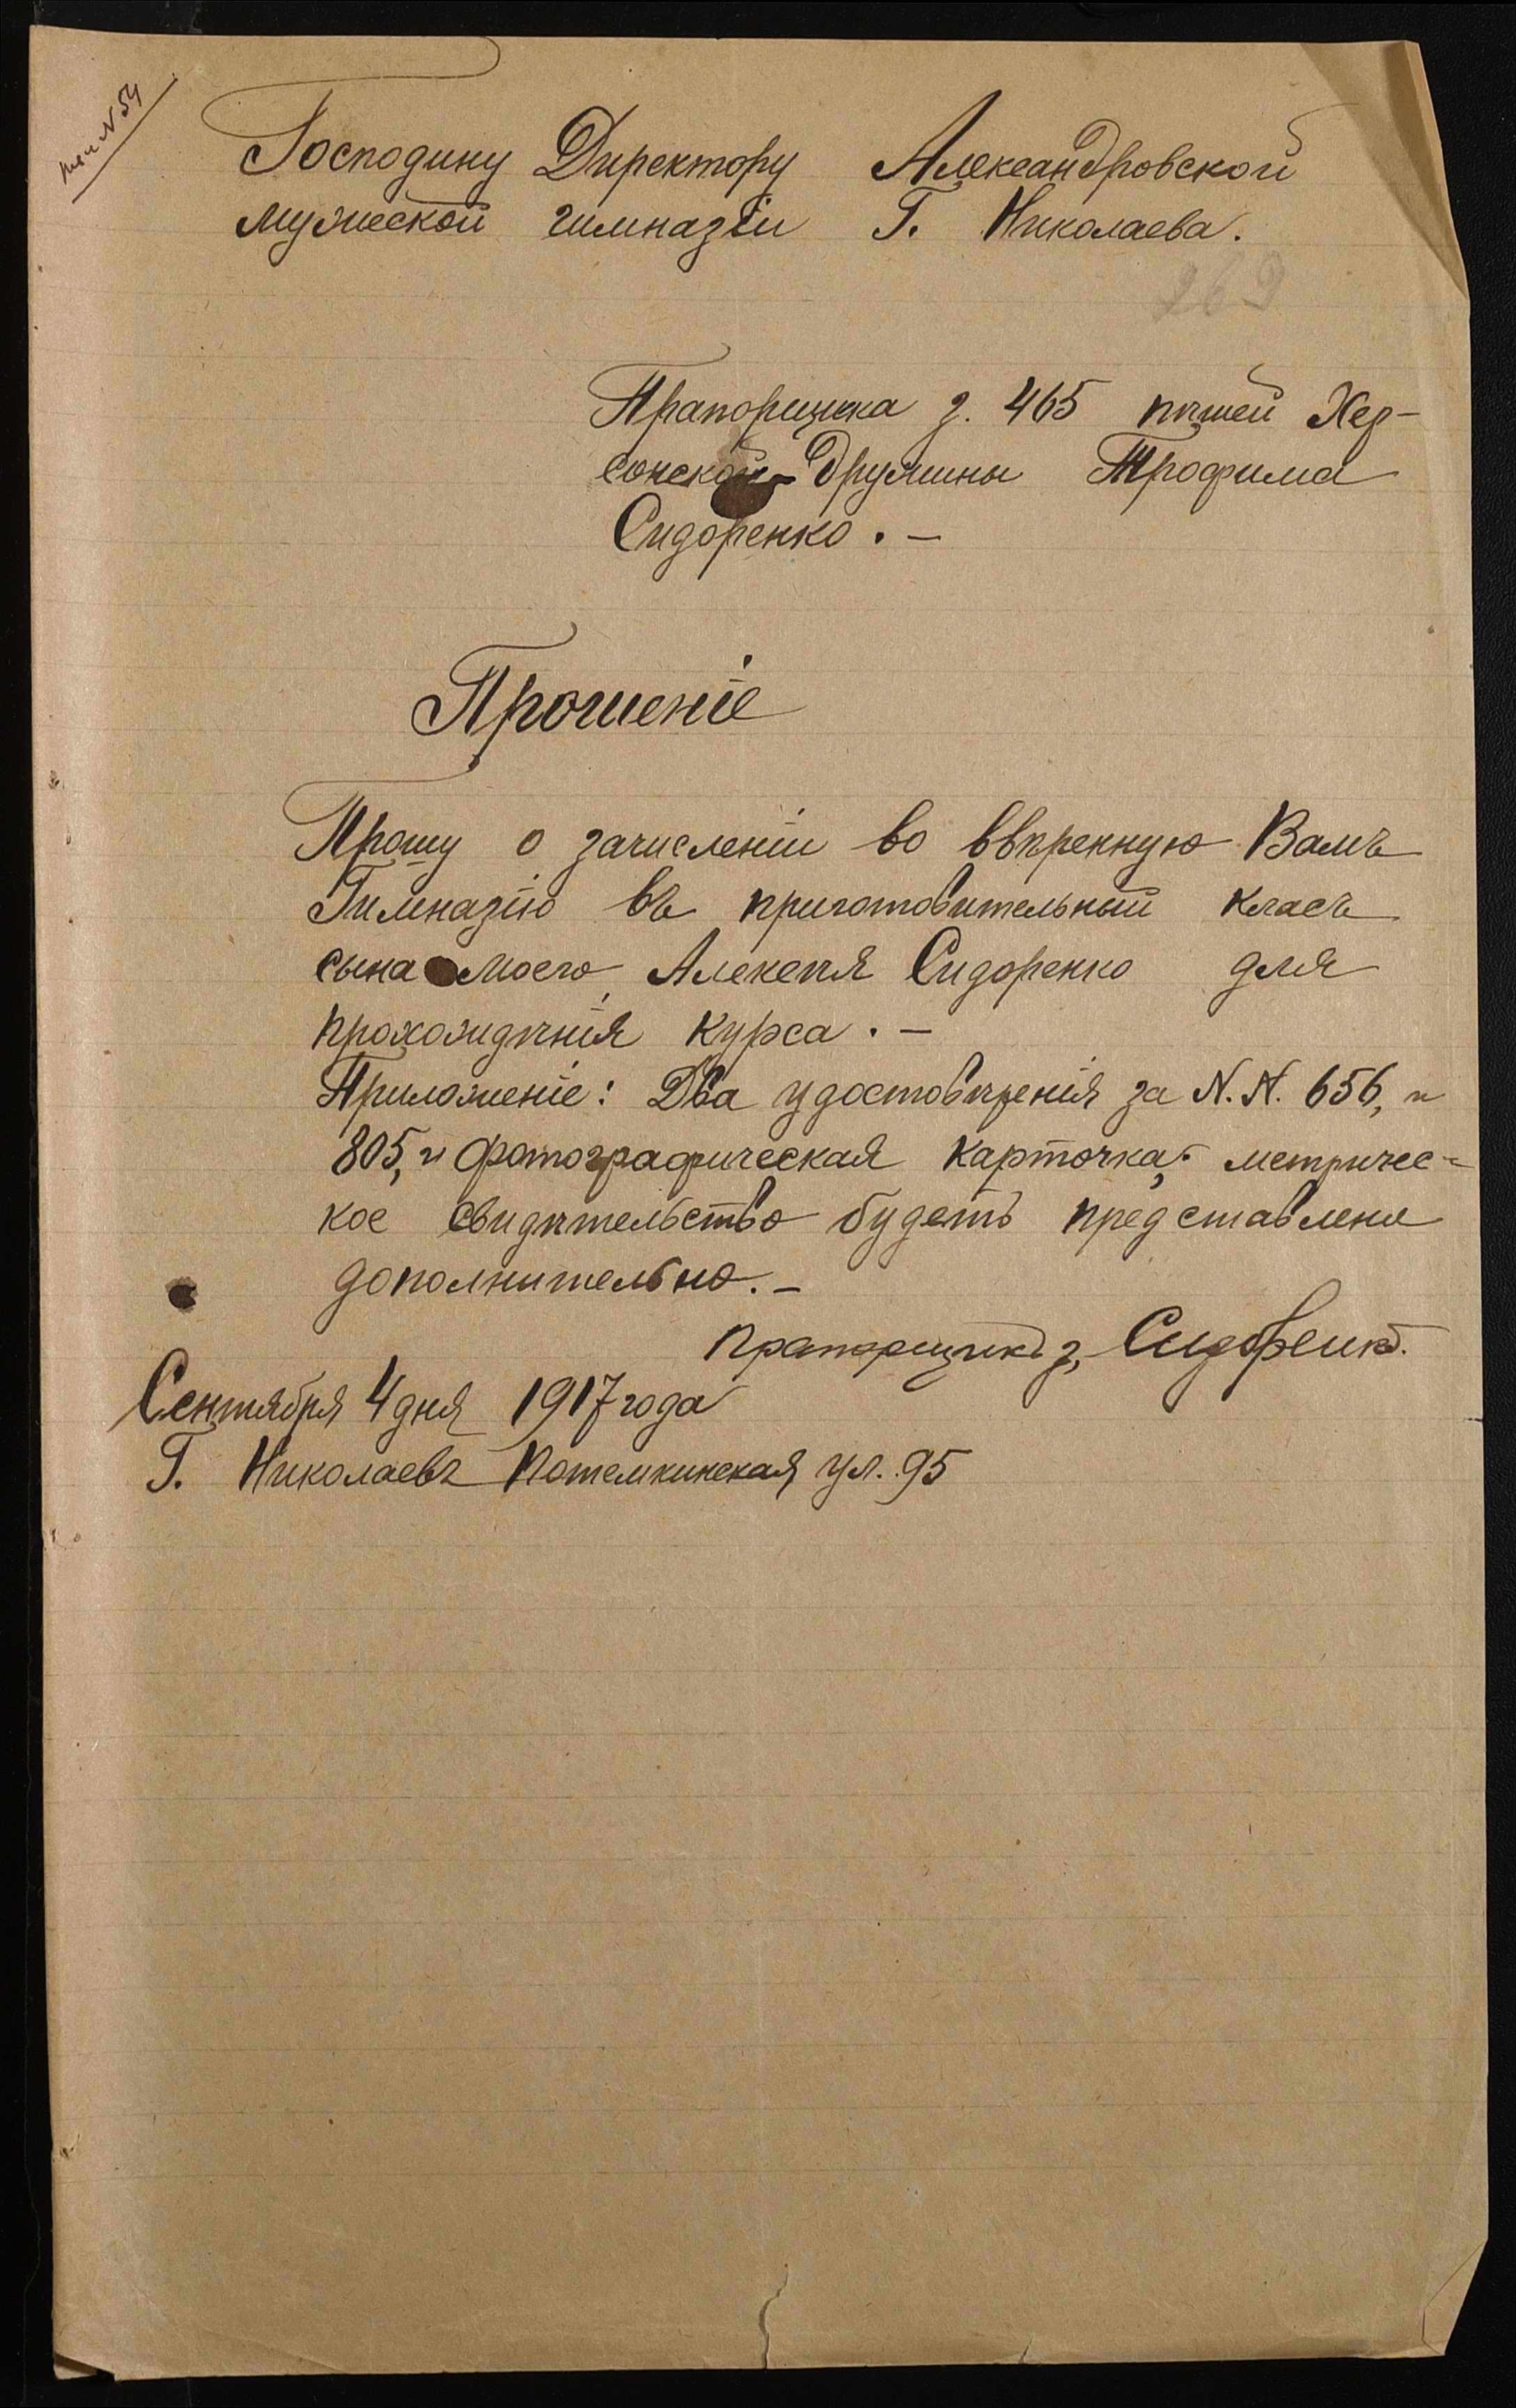 N 54
Господину Директору Александровской
мужеской гимназіи Г. Николаева.
269
Прапорщика з. 465 пѣшей Хер-
сонской дружины Трофима
Сидоренко. —
Прошеніе
Прошу о зачисленіи во ввѣренную Вамъ
Гимназію въ приготовительный класъ
сына моего Алексѣя Сидоренко для
прохождѣнія курса. —
Приложеніе: Два удостовѣренія за N.N. 656, и
805, и фотографическая карточка; метричес-
кое свидѣтельство будетъ представлено
дополнительно. —
Прапорщикъ з. Сидоренко.
Сентября 4 дня 1917 года
Г. Николаевъ Потемкинская ул. 95